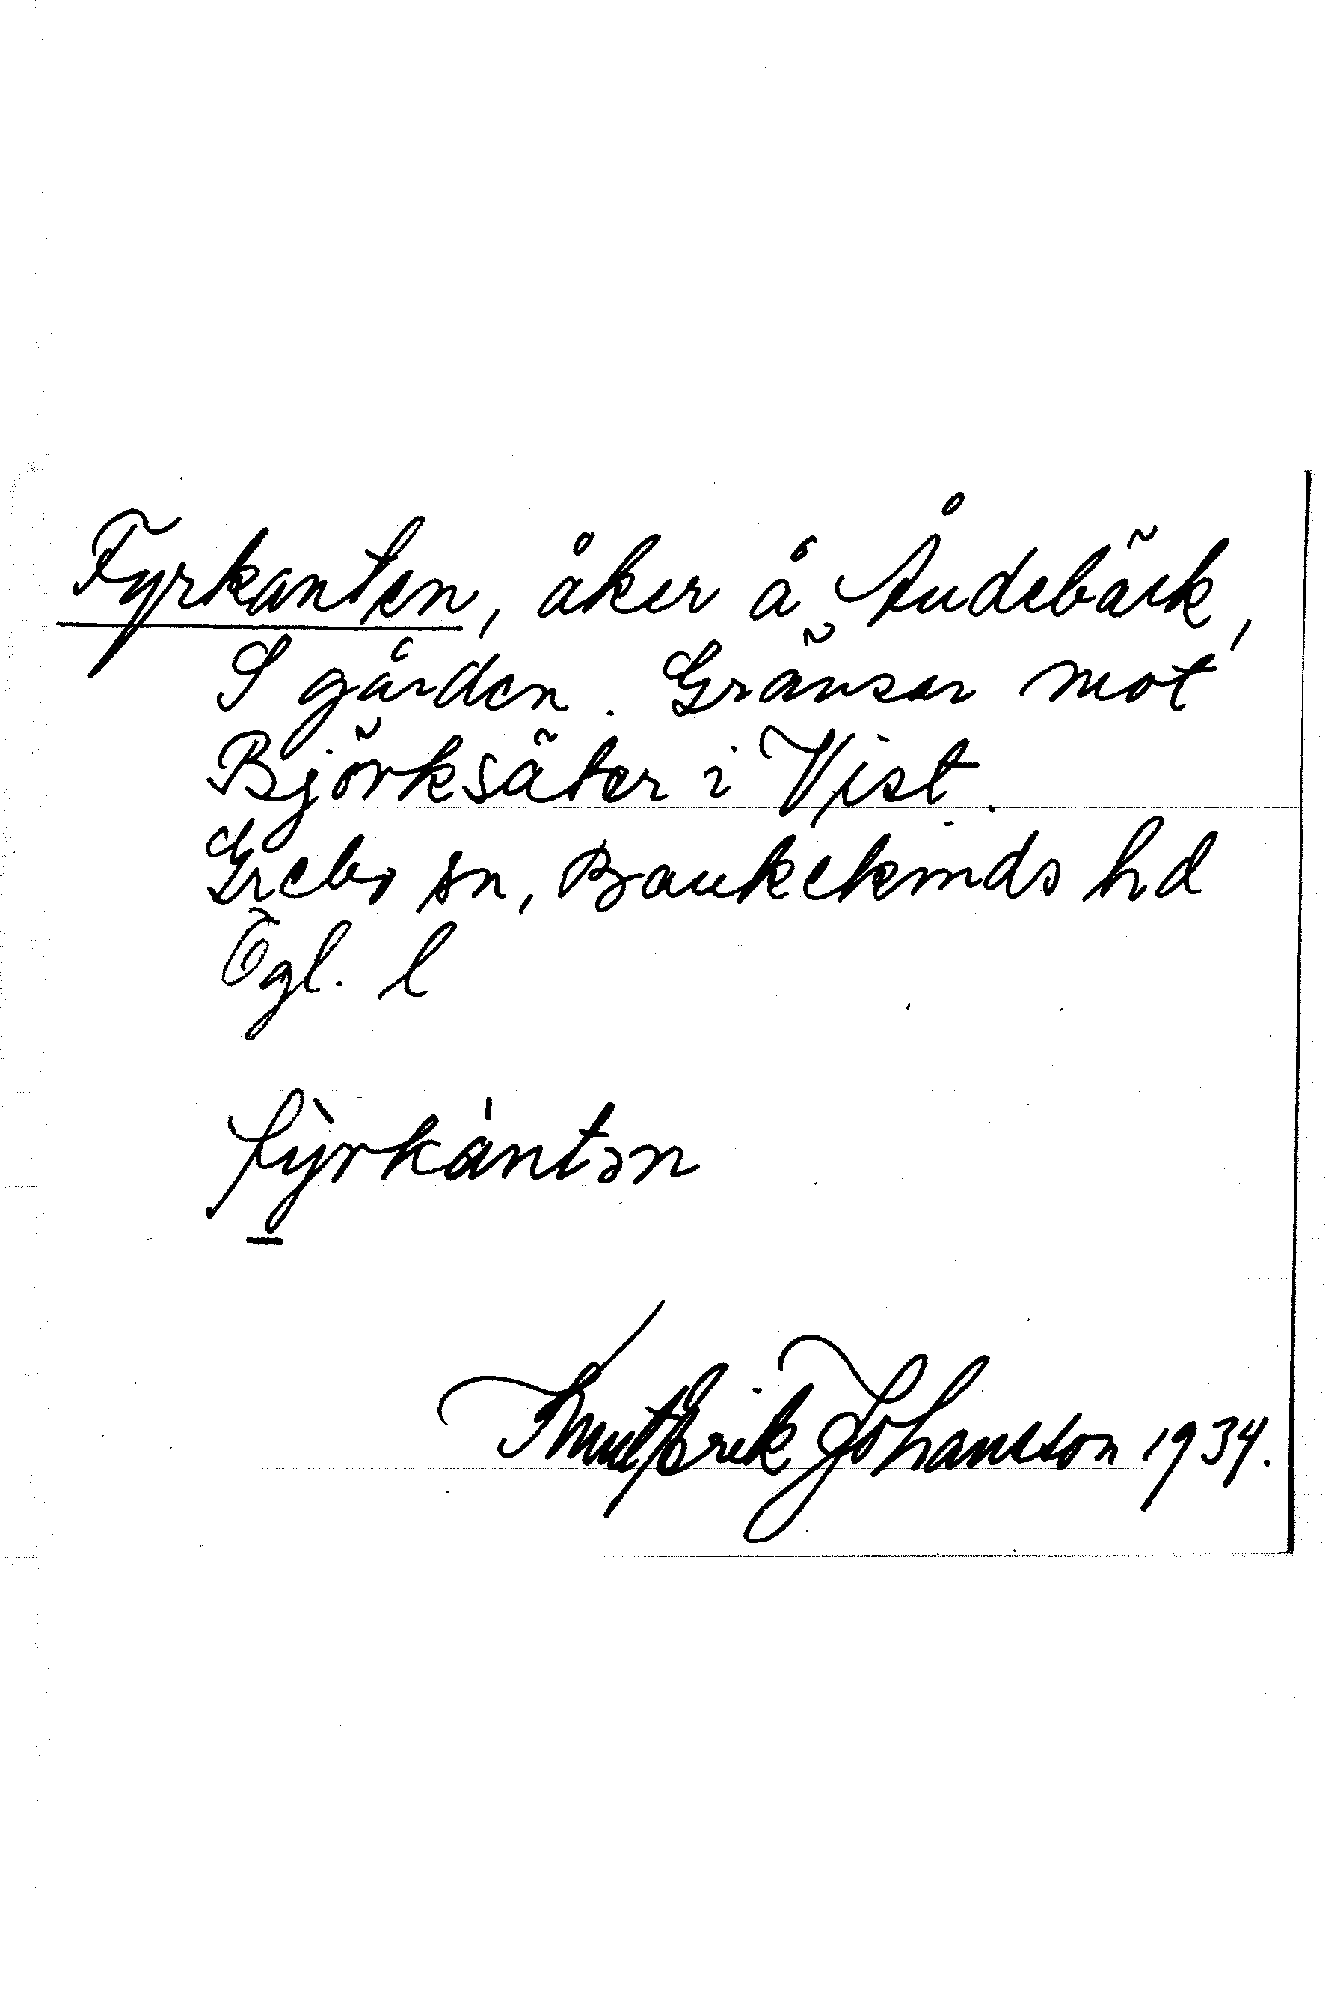 Fyrkanten, åker å Åndebäck,
S gården. Gränsar mot
Björksäter i Vist.
Grebo sn, Bankekinds hd
Ögl. l
fỳrkántən
Knut Erik Johansson 1934.